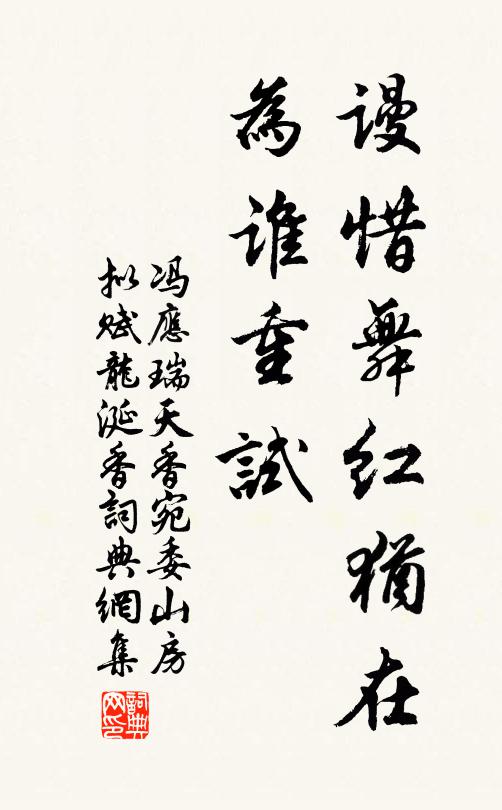 謾惜舞紅猶在
為誰重試
馮應瑞天香宛委山房
拟赋龍涎香詞典網集
詞典网印